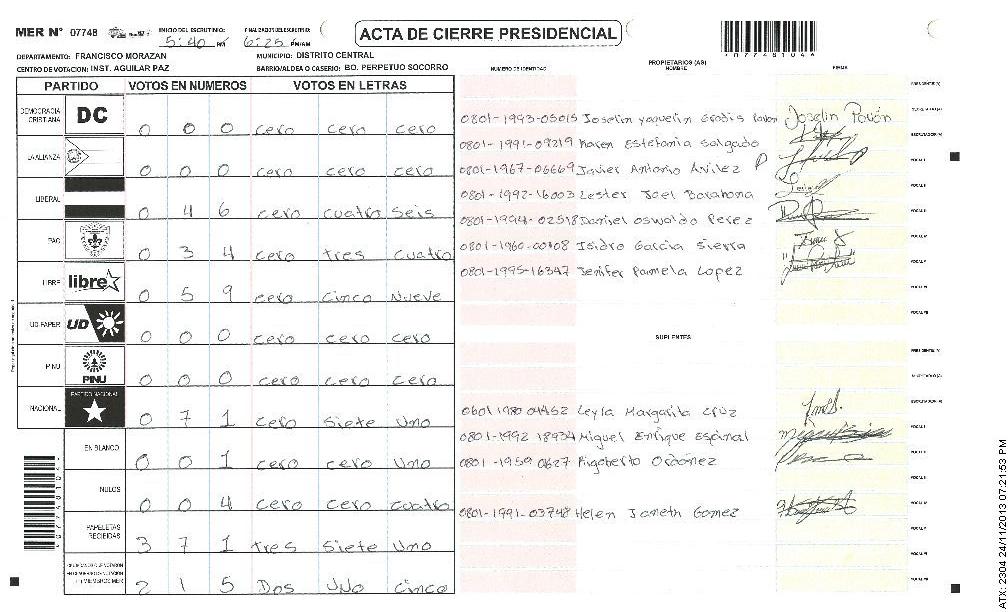 MER N° 07748 INICIO DEL ESCRUTINIO: 5:40 PM FINALIZADO DEL ESCRUTINIO: 6:25 PM/AM
ACTA DE CIERRE PRESIDENCIAL
DEPARTAMENTO: FRANCISCO MORAZAN MUNICIPIO: DISTRITO CENTRAL
CENTRO DE VOTACION: INST. AGUILAR PAZ BARRIO/ALDEA O CASERIO: BO. PERPETUO SOCORRO
PARTIDO VOTOS EN NUMEROS VOTOS EN LETRAS
DEMOCRACIA CRISTIANA DC 0 0 0 cero cero cero
LA ALIANZA 0 0 0 cero cero cero
LIBERAL 0 4 6 cero cuatro seis
PAC 0 3 4 cero tres cuatro
LIBRE libre 0 5 9 cero cinco nueve
UD-FAPER UD 0 0 0 cero cero cero
PINU PINU 0 0 0 cero cero cero
NACIONAL PARTIDO NACIONAL 0 7 1 cero siete uno
EN BLANCO 0 0 1 cero cero uno
NULOS 0 0 4 cero cero cuatro
PAPELETAS RECIBIDAS 3 7 1 tres siete uno
MIEMBROS MER 2 1 5 Dos uno cinco
NUMERO DE IDENTIDAD PROPIETARIOS (AS) NOMBRE FIRMA
0801-1993-05015 Joselin Yaquelin Gradis Pavon Joselin Pavón
0801-1991-09219 Karen Estefania Salgado
0801-1967-06669 Javier Antonio Avilez P
0801-1992-16003 Lester Joel Barahona
0801-1994-02518 Daniel Oswaldo Perez
0801-1960-00108 Isidro Garcia Sierra
0801-1995-16347 Jenifer Pamela Lopez
SUPLENTES
0601 1980 04452 Leyla Margarita Cruz
0801-1992 18934 Miguel Enrique Espinal
0801-1959 0627 Rigoberto Ordoñez
0801-1991-03748 Helen Janeth Gomez
ATX: 2304 24/11/2013 07:21:53 PM